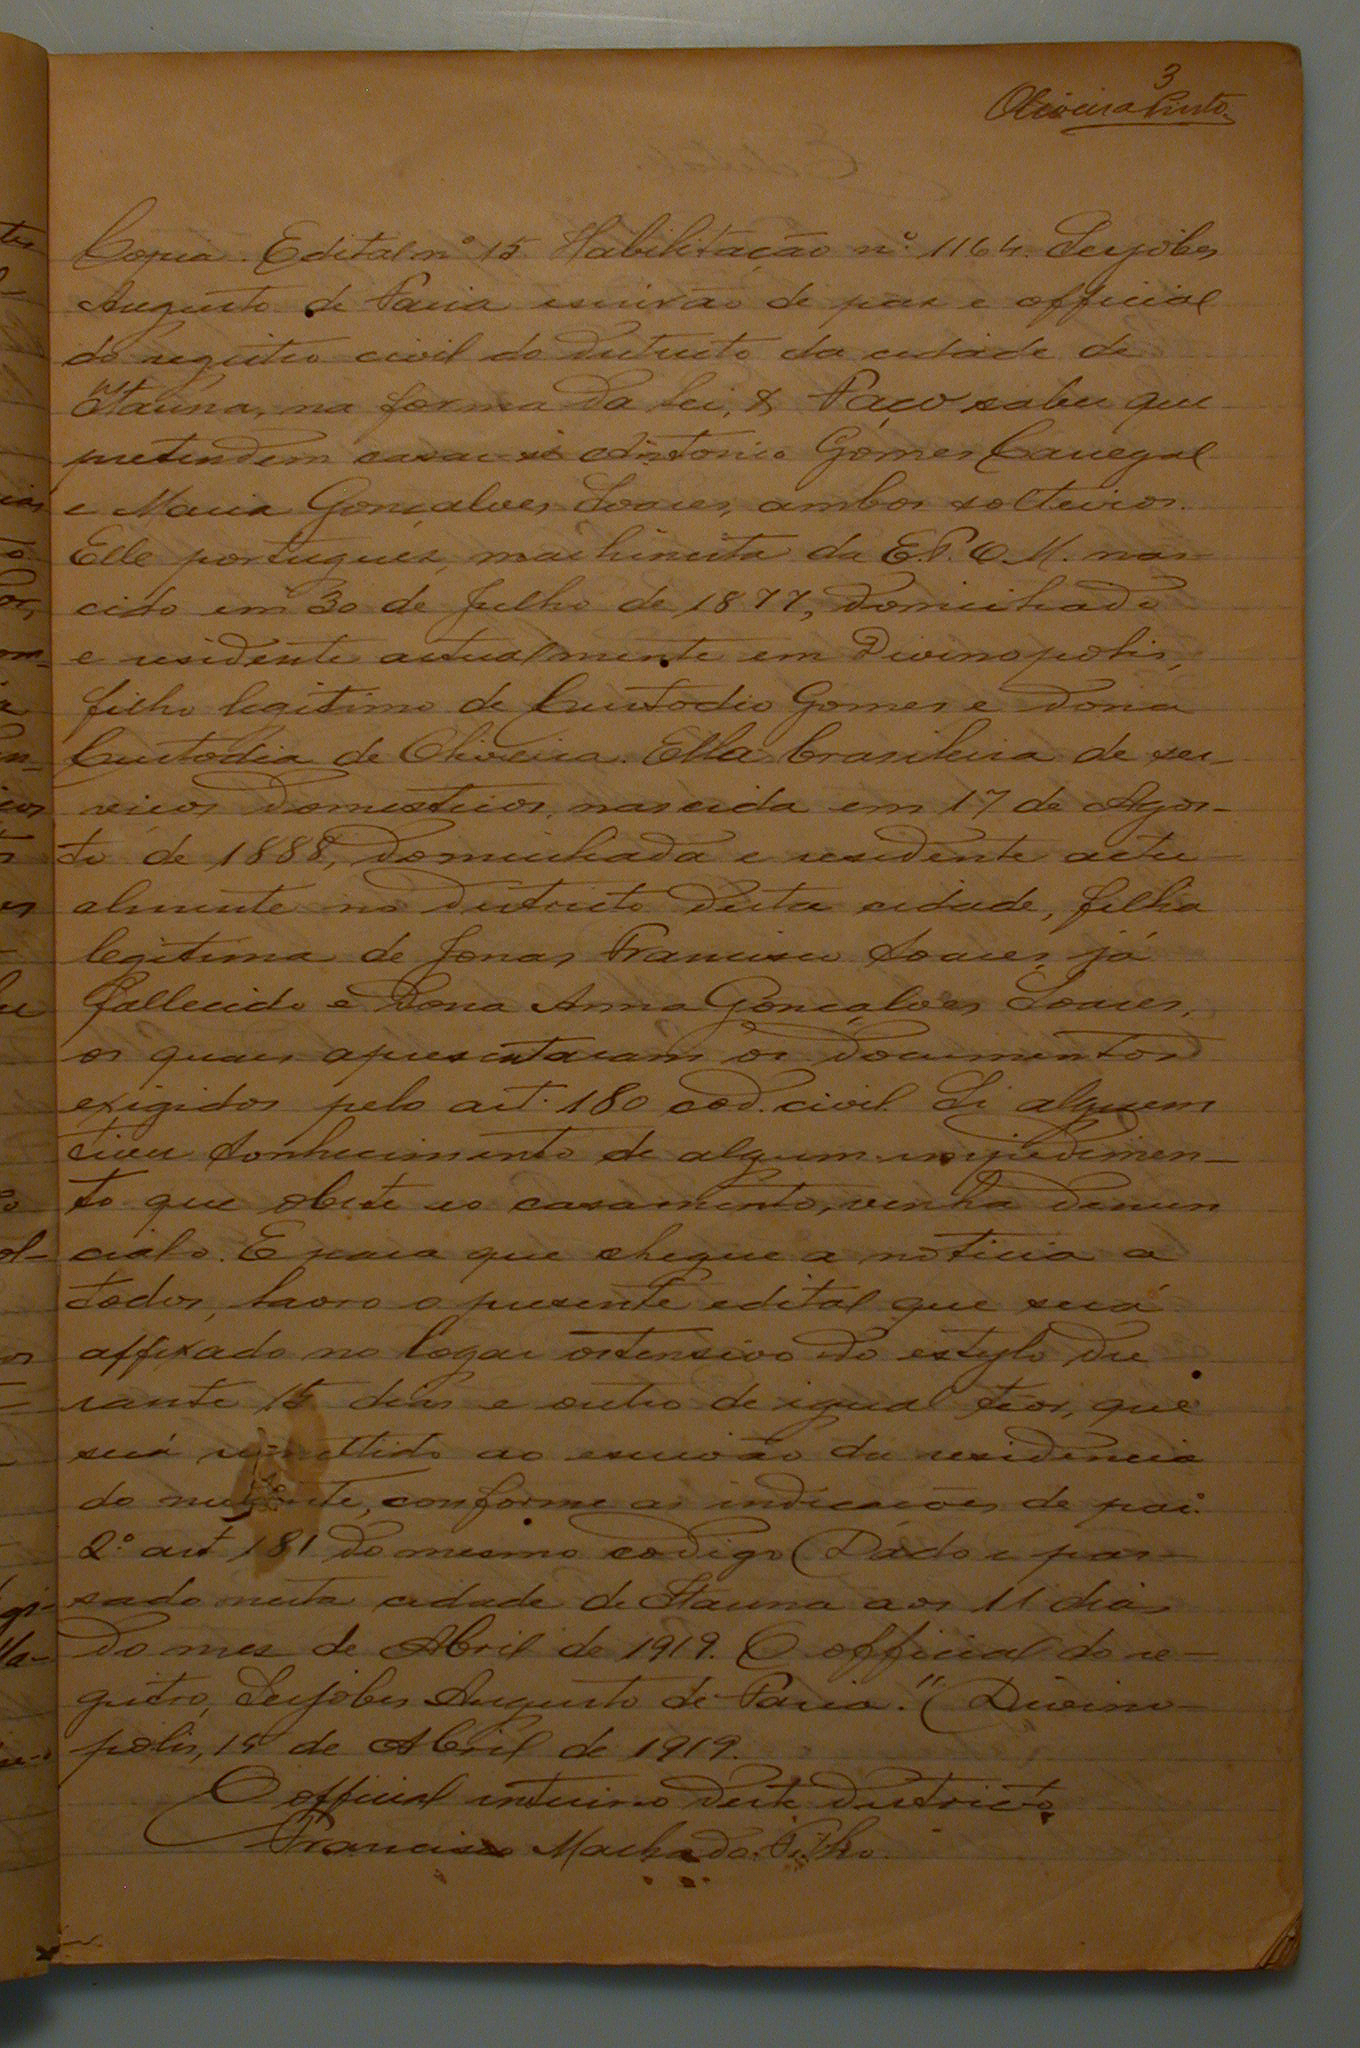 3
Oliveira Pinto
Copia. Edital nº 15 Habilitação nº 1164. Serjobes
Augusto de Faria escrivão de paz e official
do registro civil do districto da cidade de
Itauna, na forma da lei, & Faço saber que
pretendem casar-se Antonio Gomes Carregal
e Maria Gonçalves Soares, ambos solteiros.
Elle portuguez, machinista da E. F. O. M. nas-
cido em 30 de Julho de 1877, domiciliado
e residente actualmente em Divinopolis,
filho legitimo de Custodio Gomes e Dona
Custodia de Oliveira. Ella brasileira de ser-
viços domesticos, nascida em 17 de Agos-
to de 1888, domiciliada e residente actu-
almente no districto desta cidade, filha
legitima de Jonas Francisco Soares, já
fallecido e Dona Anna Gonçalves Soares,
os quaes apresentaram os documentos
exigidos pelo art. 180 cod. civil. Si alguem
tiver conhecimento de algum impedimen-
to que obste ao casamento, venha denun
cialo. E para que chegue a noticia a
todos, lavro o presente edital que será
affixado no logar ostensivo do estylo du-
rante 15 dias e outro de igual teor, que
será remettido ao escrivão da residencia
do nubente, conforme as indicações de par.
2º art 181 do mesmo codigo. Dado e pas-
sado nesta cidade de Itauna aos 11 dias
do mez de Abril de 1919. O official do re-
gistro, Serjobes Augusto de Faria." Divino-
polis, 15 de Abril de 1919.
O official interino deste districto,
Francisco Machado Filho.